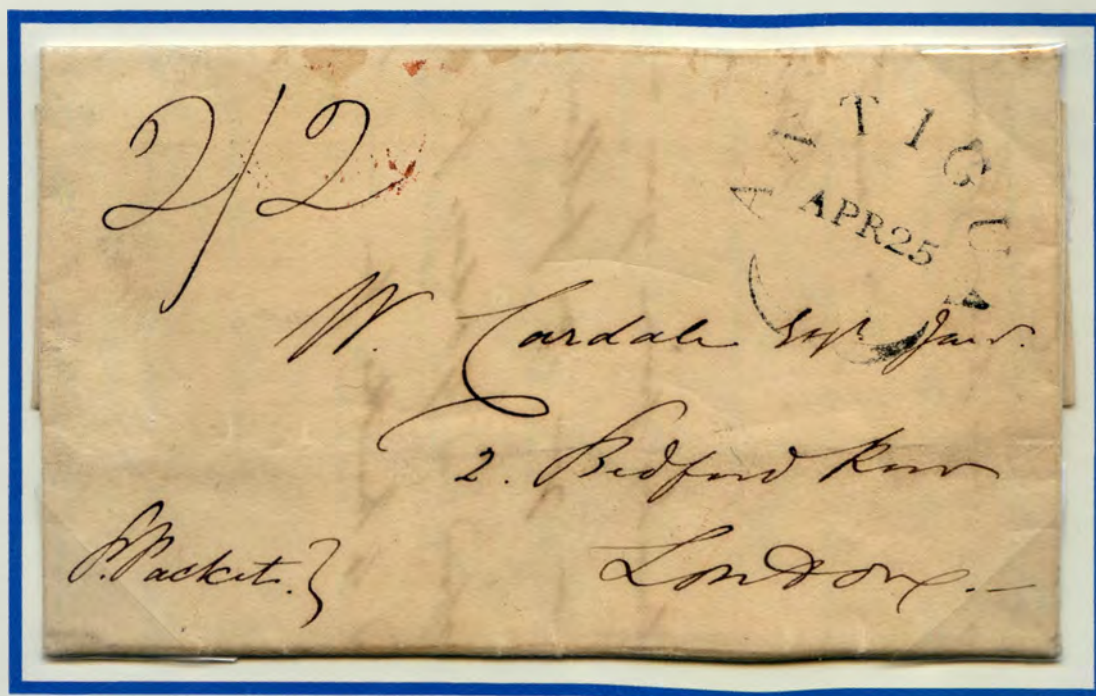 2/2
ANTIGUA
APR 25
W. Cardale Esqr Junr.
2. Bedford Row
London.
P. Packet.